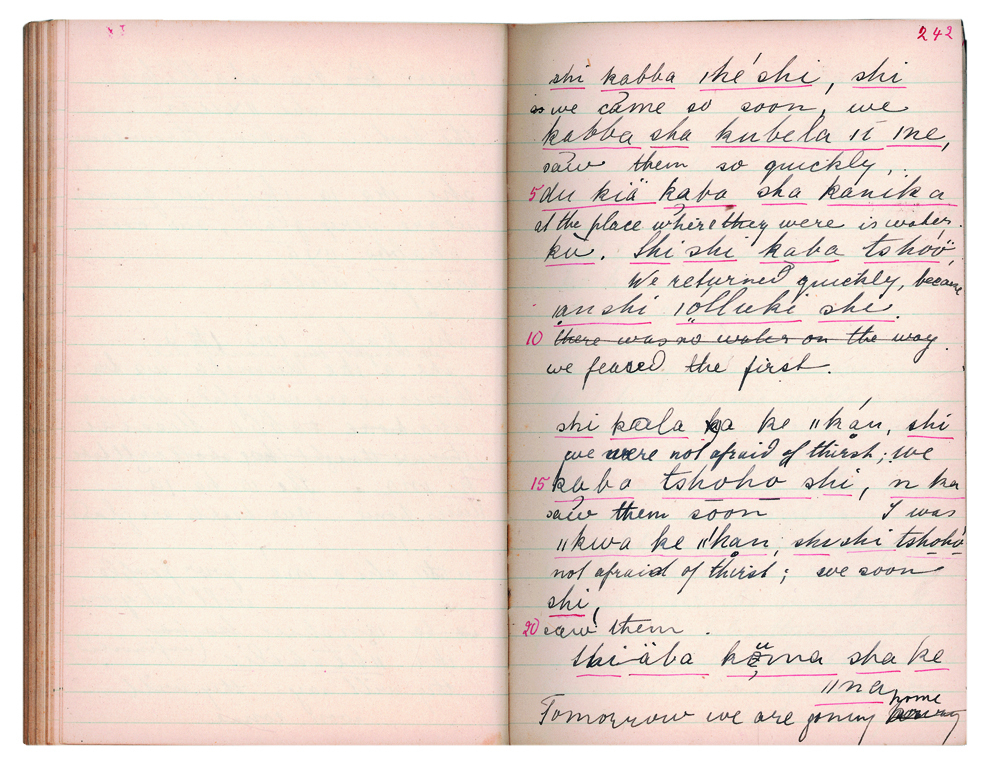 242
shi kabba ǀké shi, shi
as we came so soon, we
kabba sha kubela ıī ǀne,
saw them so quickly,
5 du kiä kaba sha kanika
at the place where they were is water.
kū. Shi shi kaba tshoö,
We returned quickly, because
an shi ǀolluki shi.
10 there was no water on the way.
we feared the first.
shi kaala ka ke ǁkán, shi
we were not afraid of thirst; we
15 kaba tshoho shi, n ka
saw them soon I was
ǁkwa ke ǁkan, shi shi tshoho
not afraid of thirst; we soon
shi,
20 saw them.
Shi äba sha ke
ǁna
Tomorrow we are going home